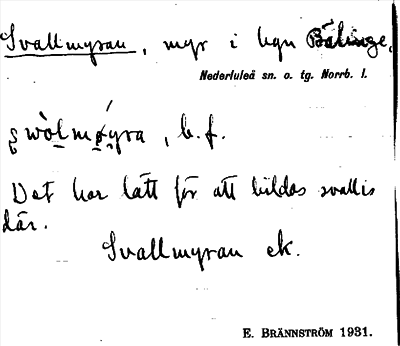 Svallmyran, myr i hgn Bälinge,
Nederluleå sn. o. tg. Norrb. l.
b. f.
Det har lätt för att bildas svallis
där.
Svallmyran ek.
E. BRÄNNSTRÖM 1931.